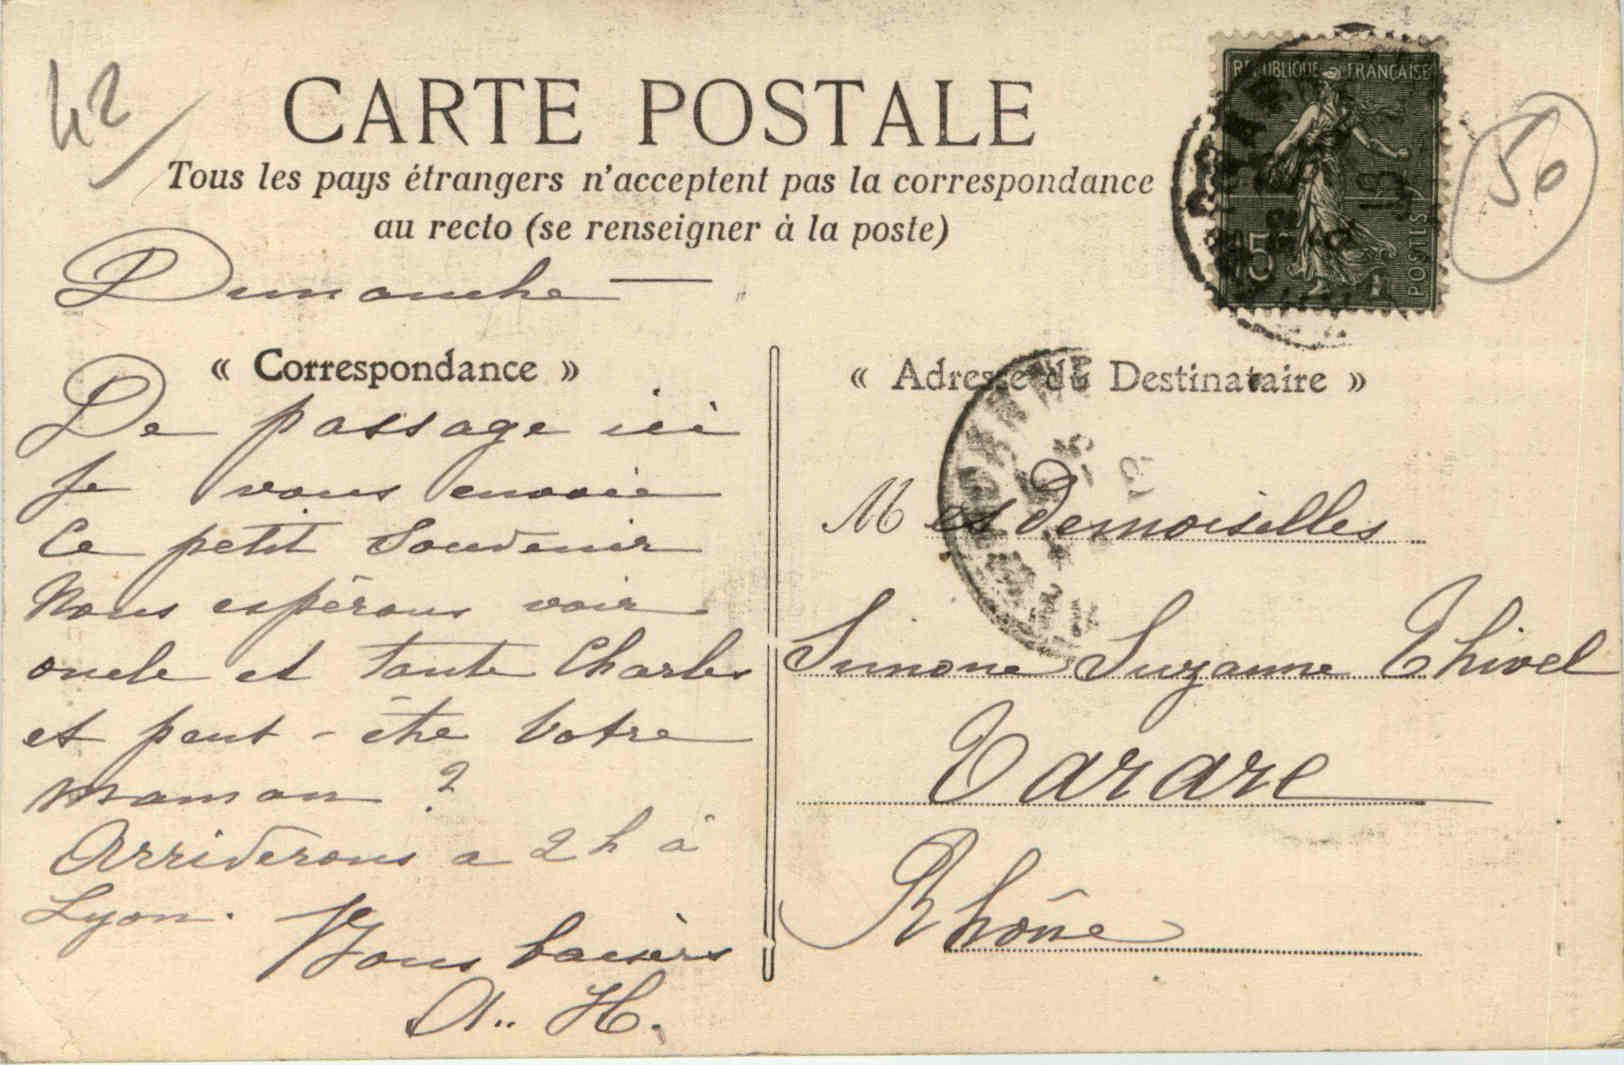 42
CARTE POSTALE
Tous les pays étrangers n'acceptent pas la correspondance
au recto (se renseigner à la poste)
REPUBLIQUE FRANCAISE
15
POSTES
50
Dimanche
« Correspondance »
De passage ici
Je vous envoie
Ce petit Souvenir
Nous espérons voir
oncle et tante Charles
et peut-être Votre
maman ?
Arriverons a 2 h à
Lyon.
Bons baisers
A.. H.
« Adresse du Destinataire »
Mesdemoiselles
Simone Suzanne Thivel
Tarare
Rhône